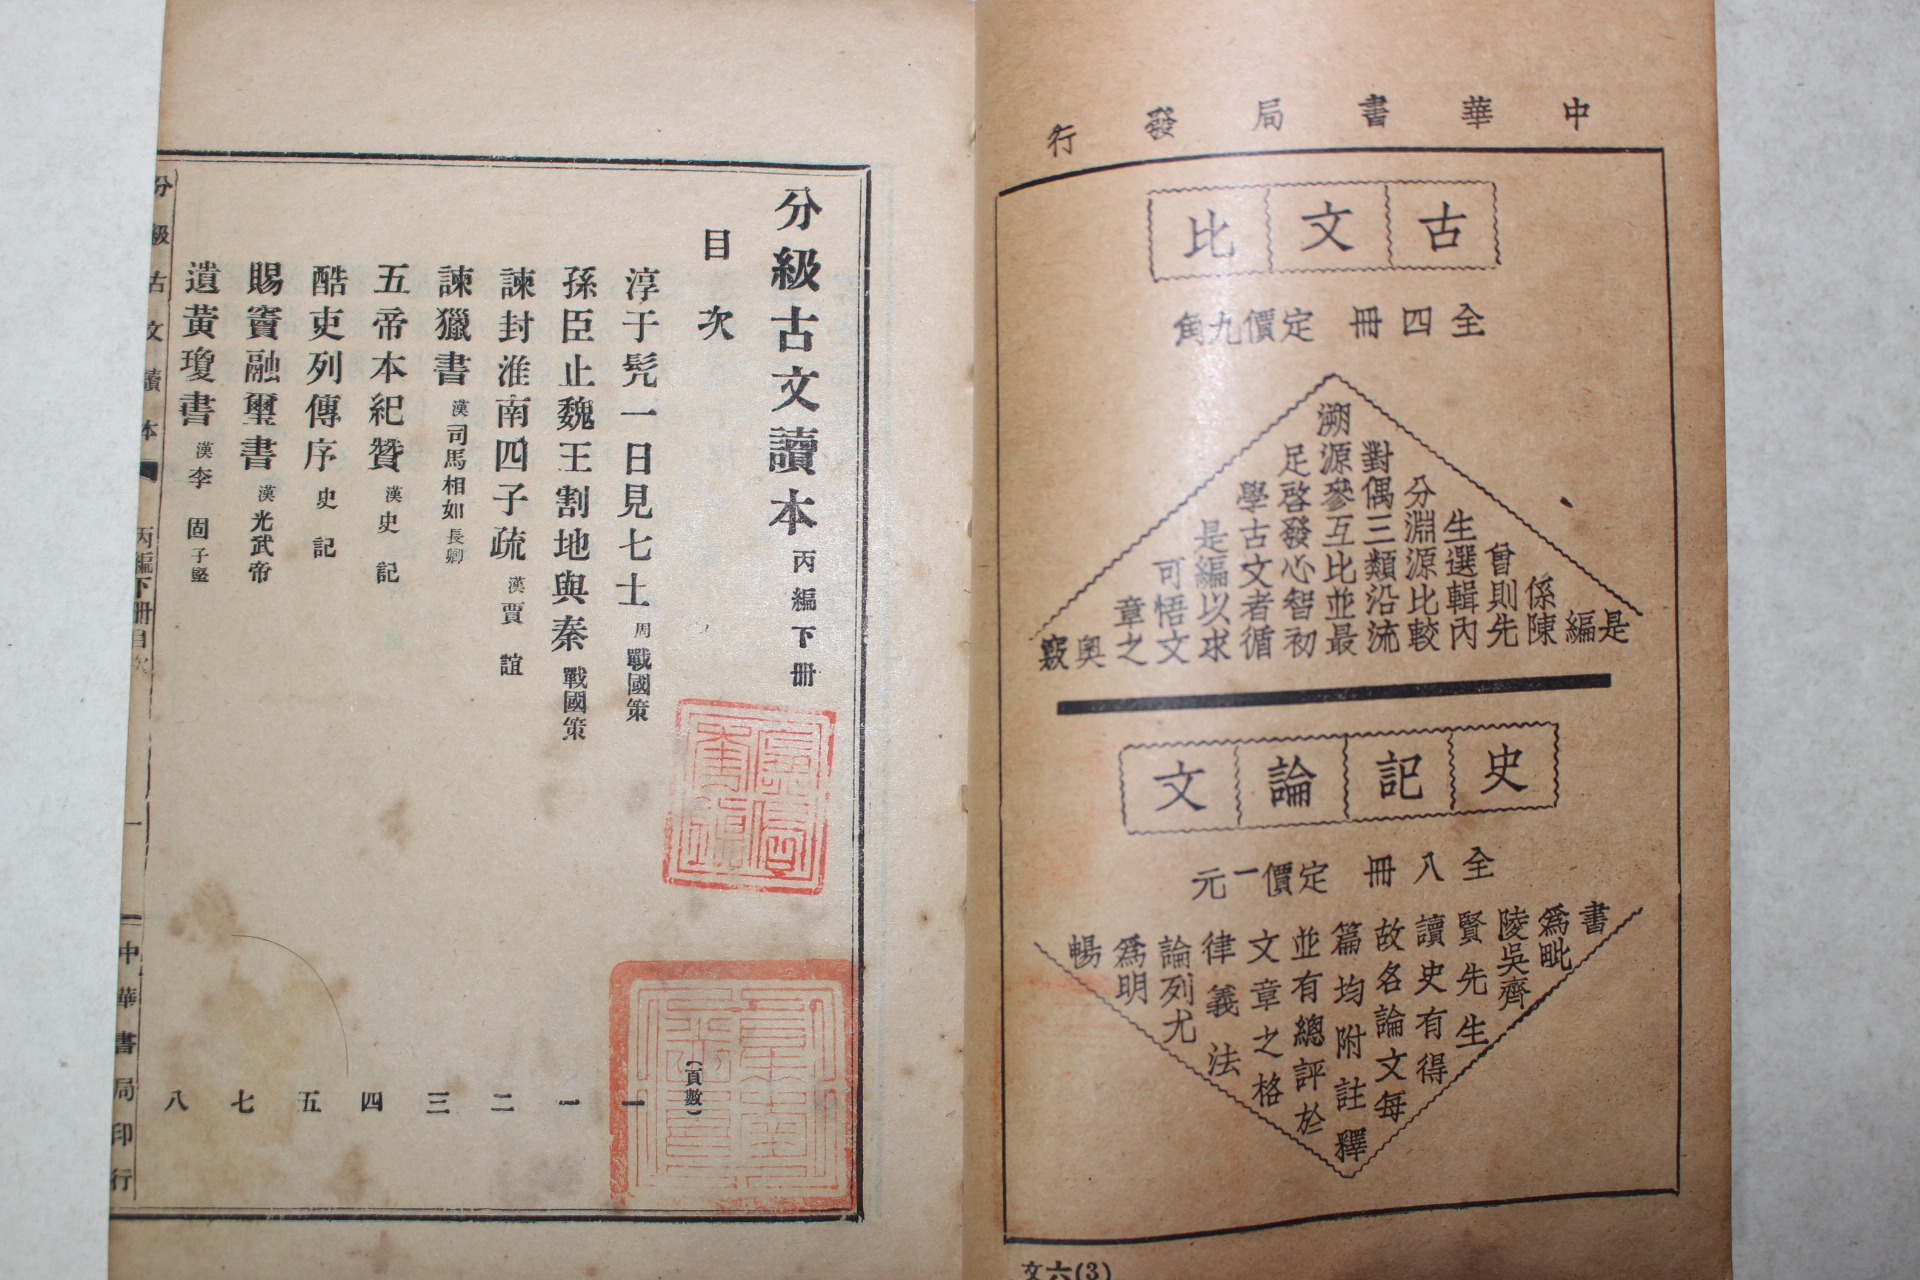 中華書局發行
古文比
全四冊 定價九角
是
編
係陳
曾則先
生選輯內
分淵源比較
對偶三類沿流
溯源參互比並最
足啓發心智初
學古文者循
是編以求
可悟文
章之
奧
竅
史記論文
全八冊 定價一元
書
爲毗
陵吳齊
賢先生
讀史有得
故名論文每
篇均附註釋
並有總評於
文章之格
律義法
論列尤
爲明
暢
文六(3)
分級古文讀本 丙編下册
目次 (頁數)
淳于髡一日見七士 周戰國策 一
孫臣止魏王割地與秦 戰國策 一
諫封淮南四子疏 漢賈誼 二
諫獵書 漢司馬相如長卿 三
五帝本紀贊 漢史記 四
酷吏列傳序 史記 五
賜竇融璽書 漢光武帝 七
遺黃瓊書 漢李固子堅 八
分級古文讀本 丙編下册目次 一 中華書局印行